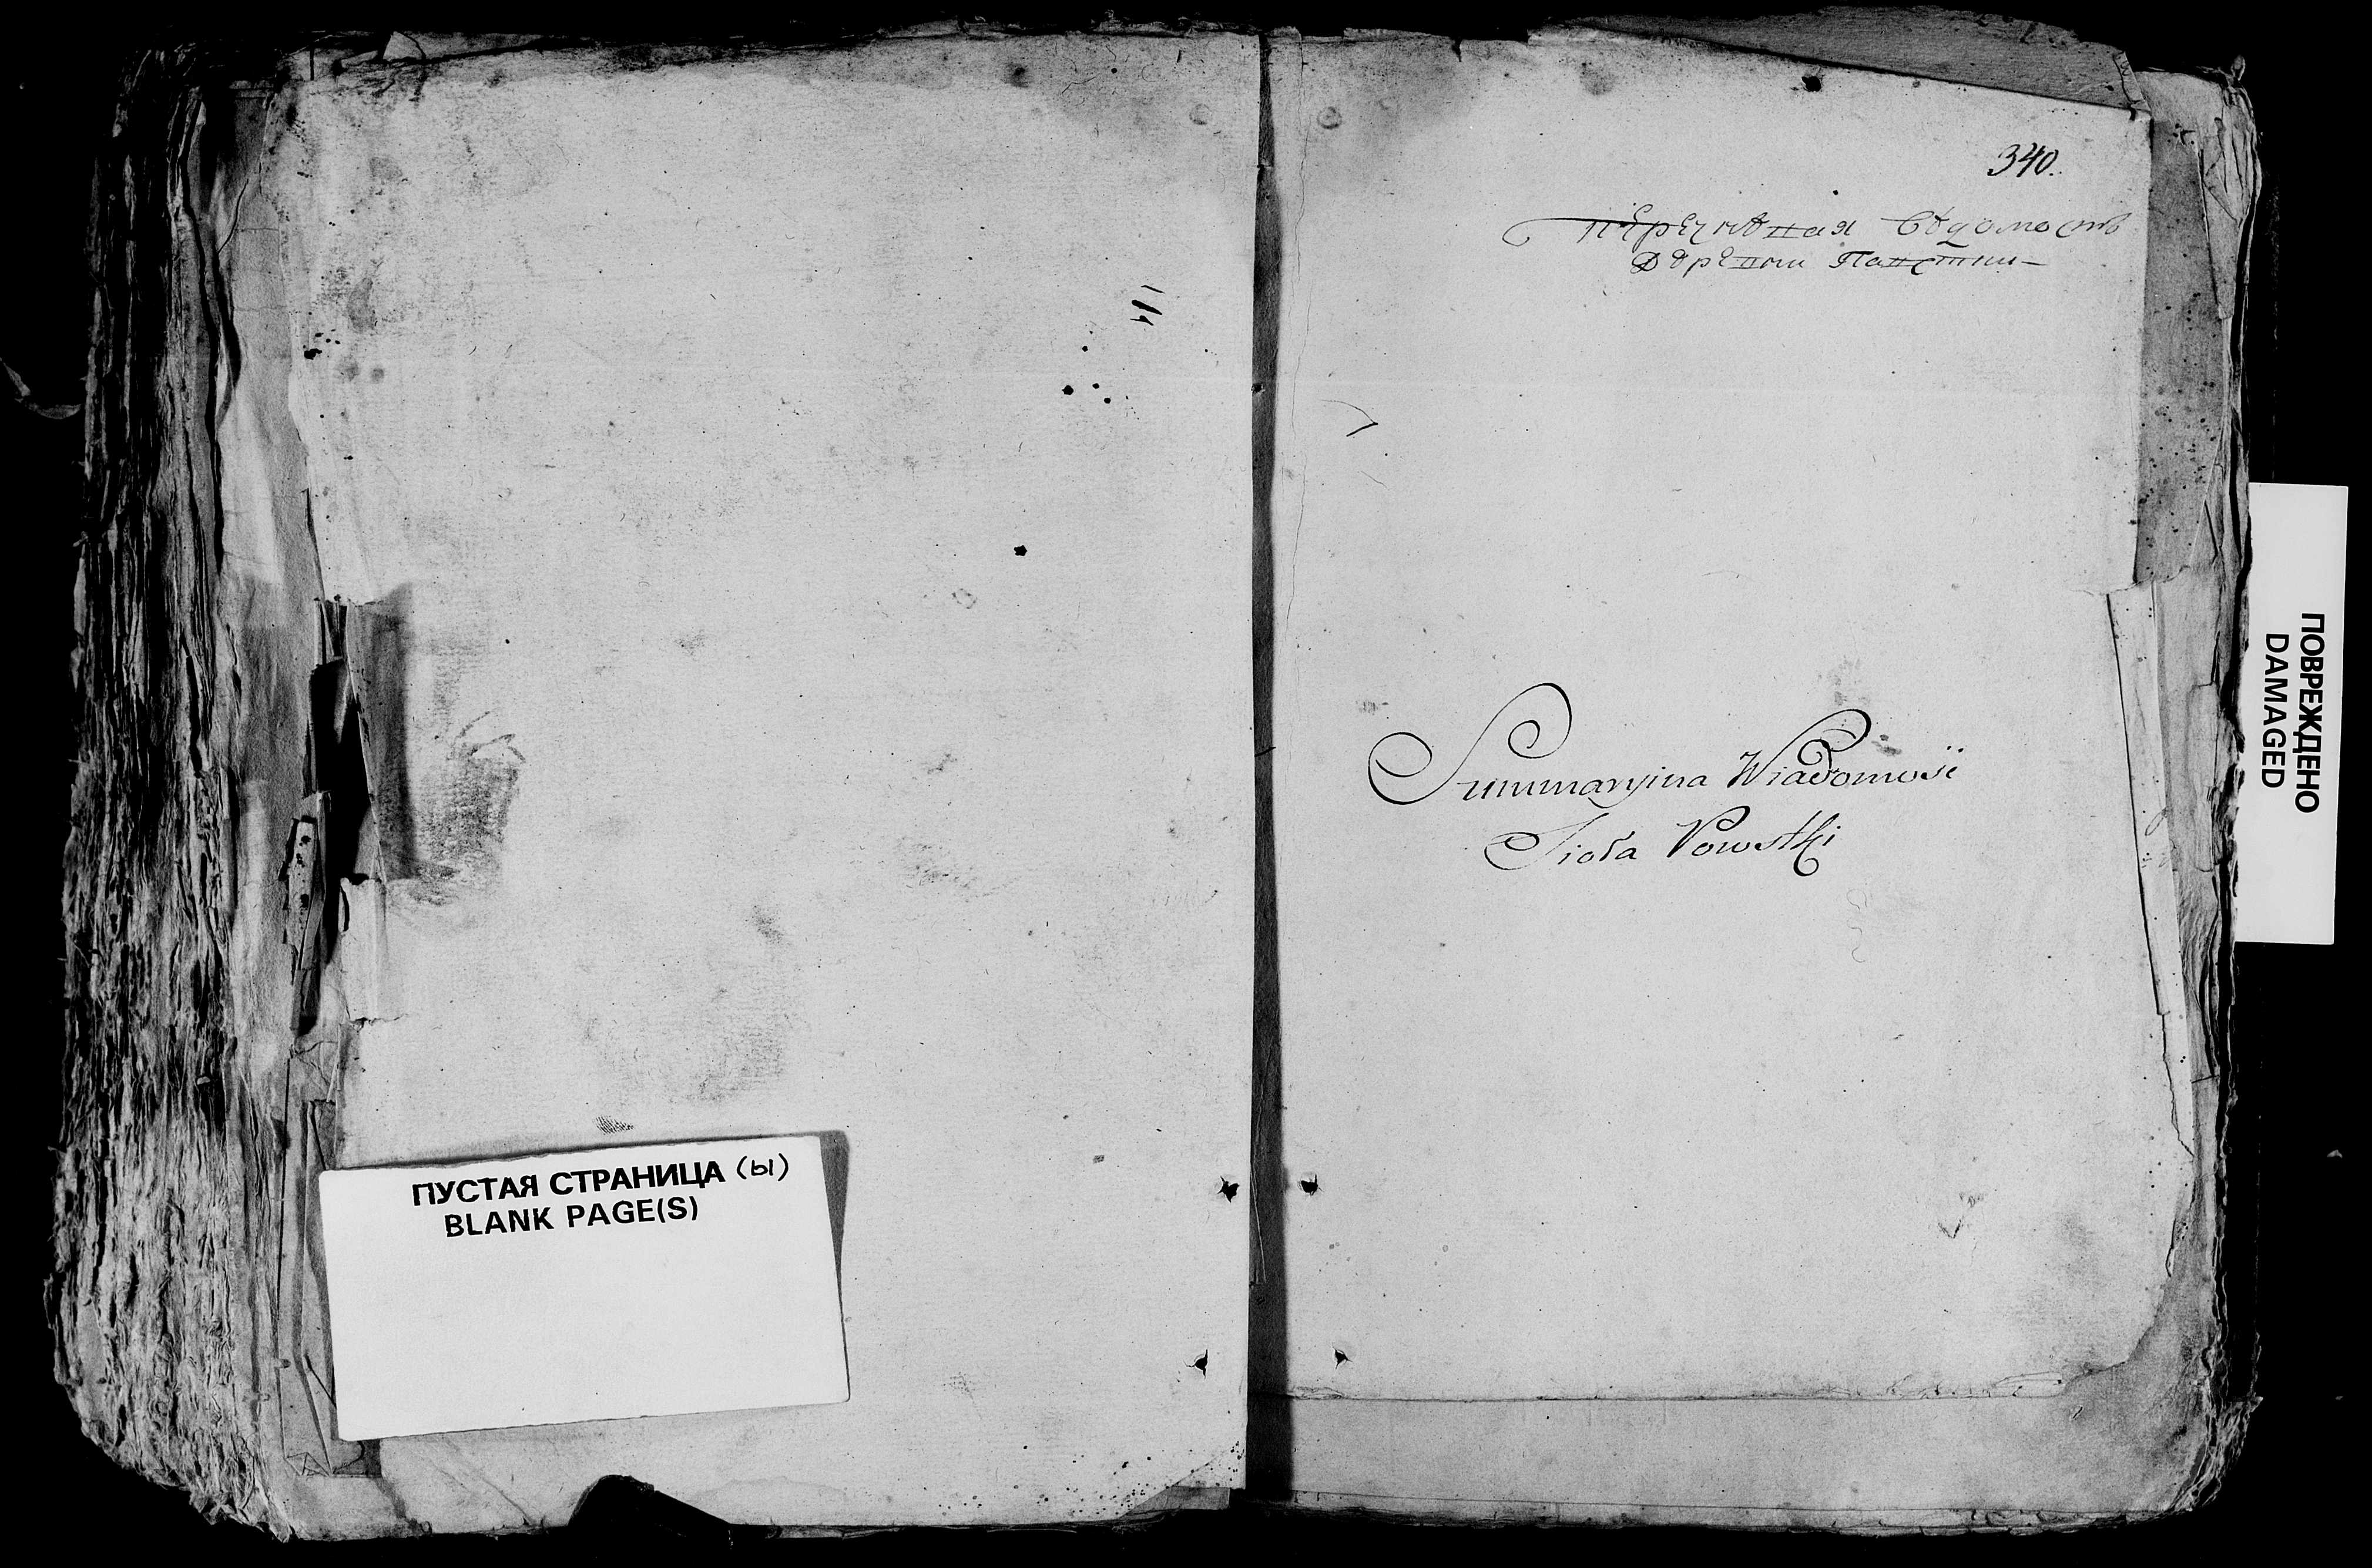 340.
Перечневая Ведомость
Деревни
Summaryina Wiadomość
Sioła Powstki
ПУСТАЯ СТРАНИЦА (ы)
BLANK PAGE(S)
ПОВРЕЖДЕНО
DAMAGED